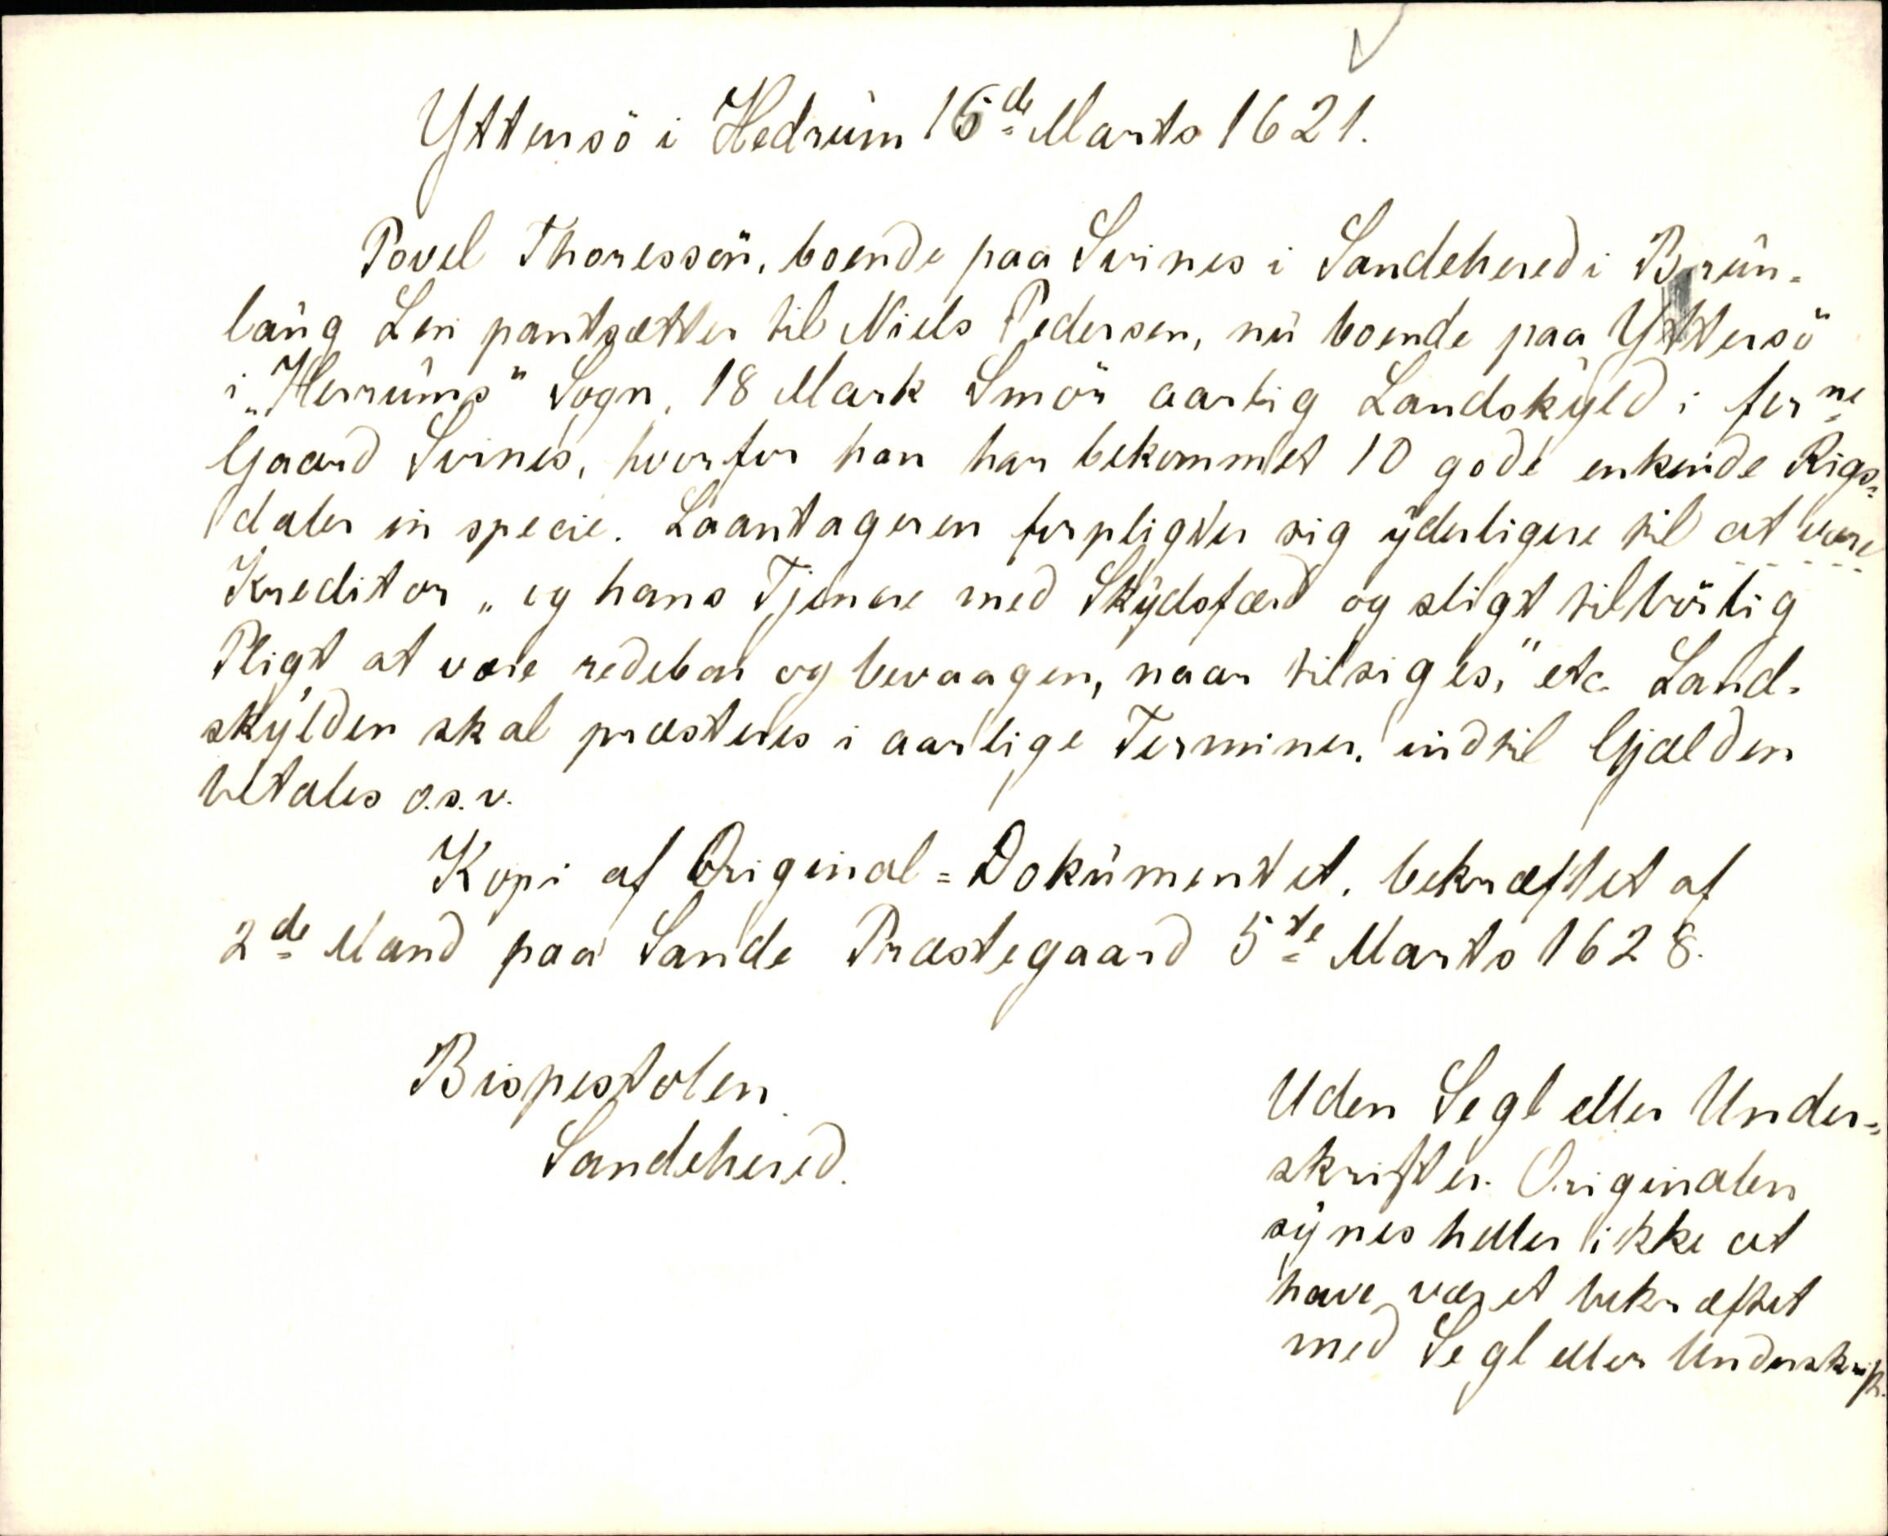 Yttersö i Hedrum 15de Marts 1621.
Povel Thoressön, boende paa Svines i Sandehered i Brun-
laug Len pantsætter til Niels Pedersen, nu boende paa Yttersö
i "Herrums" Sogn, 18 Mark Smör aarlig Landskyld i forne
Gaard Svines, hvorfor han har bekommet 10 gode enkende Rigs-
daler in specie. Laantageren forpligter sig yderligere til at være
Kreditor "og hans Tjenere med Skydsfærd og sligt tilbörlig
Pligt at være redebon og bevaagen, naar tilsiges," etc. Land-
skylden skal præsteres i aarlige Terminer, indtil Gjælden
betales o.s.v.
Kopi af Original-Dokumentet, bekræftet af
2de Mand paa Sande Præstegaard 5te Marts 1628.
Bispestolen
Sandehered.
Uden Segl eller Under-
skrifter. Originalen
synes heller ikke at
have været bekræftet
med Segl eller Underskrift.